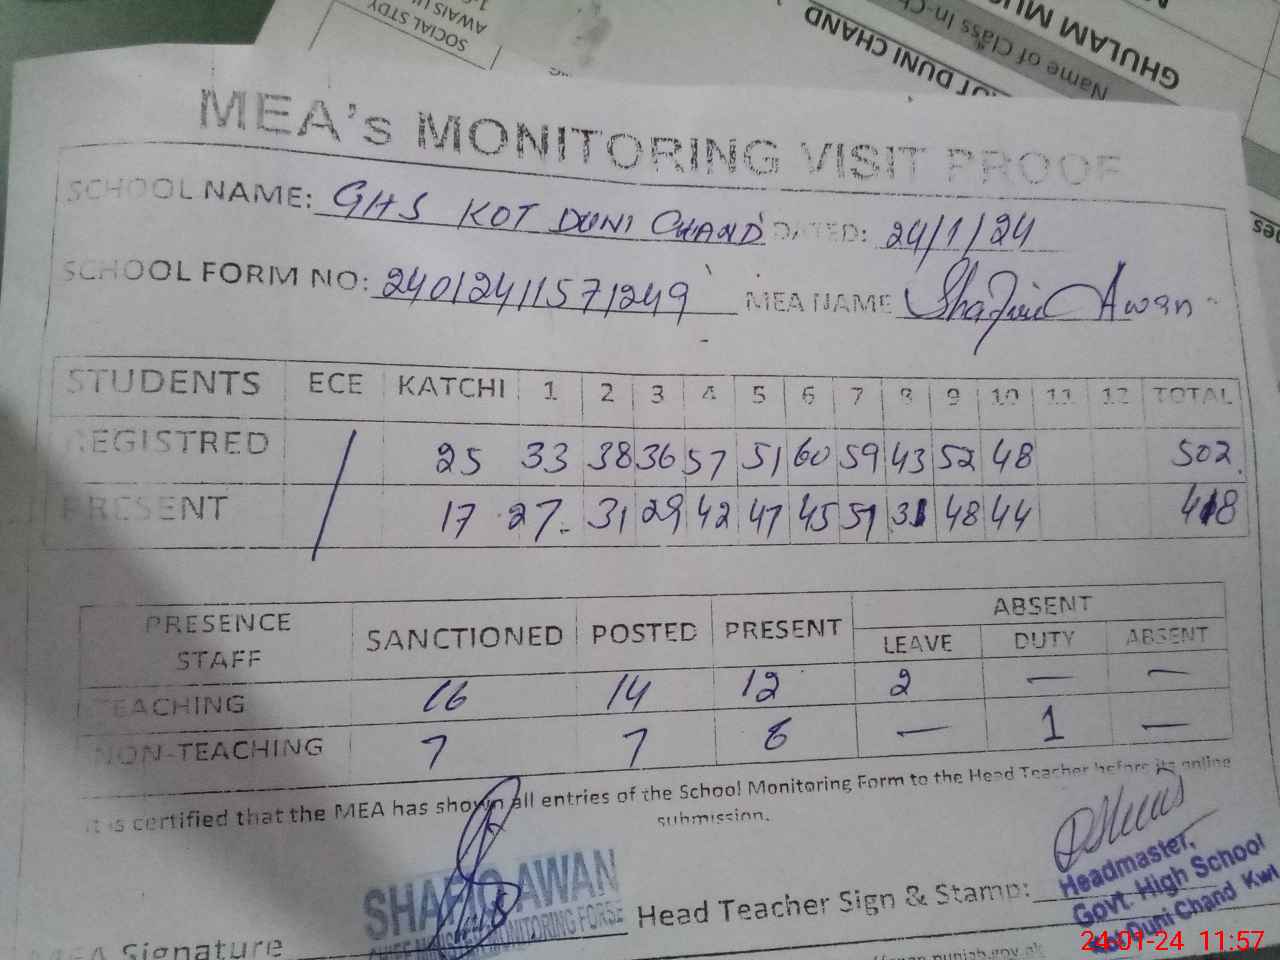 SOCIAL STDY
AWAIS
GHULAM MU
Name of Class In-Ch
OT DUNI CHAND
MEA's MONITORING VISIT PROOF
SCHOOL NAME: GHS KOT DUNI CHAND DATED: 24/1/24
SCHOOL FORM NO: 24012411571249 MEA NAME Shafiq Awan
STUDENTS ECE KATCHI 1 2 3 4 5 6 7 8 9 10 11 12 TOTAL
REGISTRED / 25 33 38 36 57 51 60 59 43 52 48 502
PRESENT 17 27 31 29 42 47 45 51 31 48 44 418
PRESENCE STAFF SANCTIONED POSTED PRESENT ABSENT
LEAVE DUTY ABSENT
TEACHING 16 14 12 2 — —
NON-TEACHING 7 7 6 — 1 —
It is certified that the MEA has shown all entries of the School Monitoring Form to the Head Teacher before its online
submission.
MEA Signature SHAFIQ AWAN
CHIEF MINISTER MONITORING FORSE
Head Teacher Sign & Stamp:
Headmaster,
Govt. High School
Kot Duni Chand Kwl
.punjab.gov.pk
24-01-24 11:57